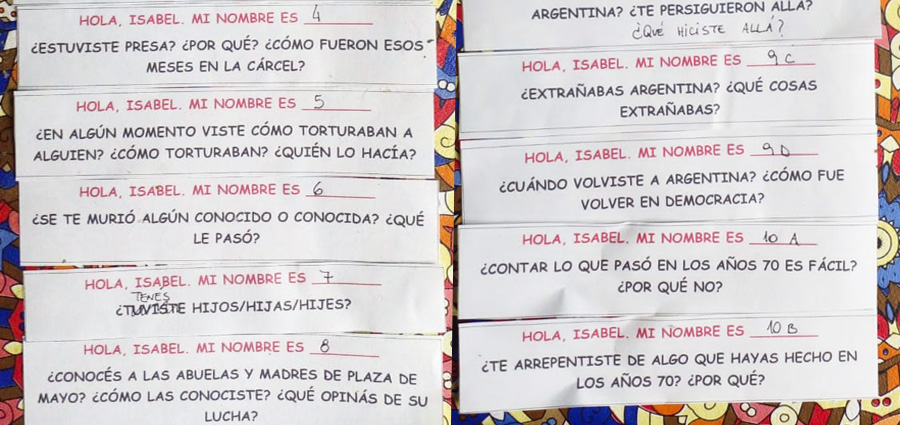 HOLA, ISABEL. MI NOMBRE ES 4
¿ESTUVISTE PRESA? ¿POR QUÉ? ¿CÓMO FUERON ESOS
MESES EN LA CÁRCEL?
HOLA, ISABEL. MI NOMBRE ES 5
¿EN ALGÚN MOMENTO VISTE CÓMO TORTURABAN A
ALGUIEN? ¿CÓMO TORTURABAN? ¿QUIÉN LO HACÍA?
HOLA, ISABEL. MI NOMBRE ES 6
¿SE TE MURIÓ ALGÚN CONOCIDO O CONOCIDA? ¿QUÉ
LE PASÓ?
HOLA, ISABEL. MI NOMBRE ES 7
TENES
¿TUVISTE HIJOS/HIJAS/HIJES?
HOLA, ISABEL. MI NOMBRE ES 8
¿CONOCÉS A LAS ABUELAS Y MADRES DE PLAZA DE
MAYO? ¿CÓMO LAS CONOCISTE? ¿QUÉ OPINÁS DE SU
LUCHA?
ARGENTINA? ¿TE PERSIGUIERON ALLÁ?
¿QUÉ HICISTE ALLÁ?
HOLA, ISABEL. MI NOMBRE ES 9 C
¿EXTRAÑABAS ARGENTINA? ¿QUÉ COSAS
EXTRAÑABAS?
HOLA, ISABEL. MI NOMBRE ES 9 D
¿CUÁNDO VOLVISTE A ARGENTINA? ¿CÓMO FUE
VOLVER EN DEMOCRACIA?
HOLA, ISABEL. MI NOMBRE ES 10 A
¿CONTAR LO QUE PASÓ EN LOS AÑOS 70 ES FÁCIL?
¿POR QUÉ NO?
HOLA, ISABEL. MI NOMBRE ES 10 B
¿TE ARREPENTISTE DE ALGO QUE HAYAS HECHO EN
LOS AÑOS 70? ¿POR QUÉ?